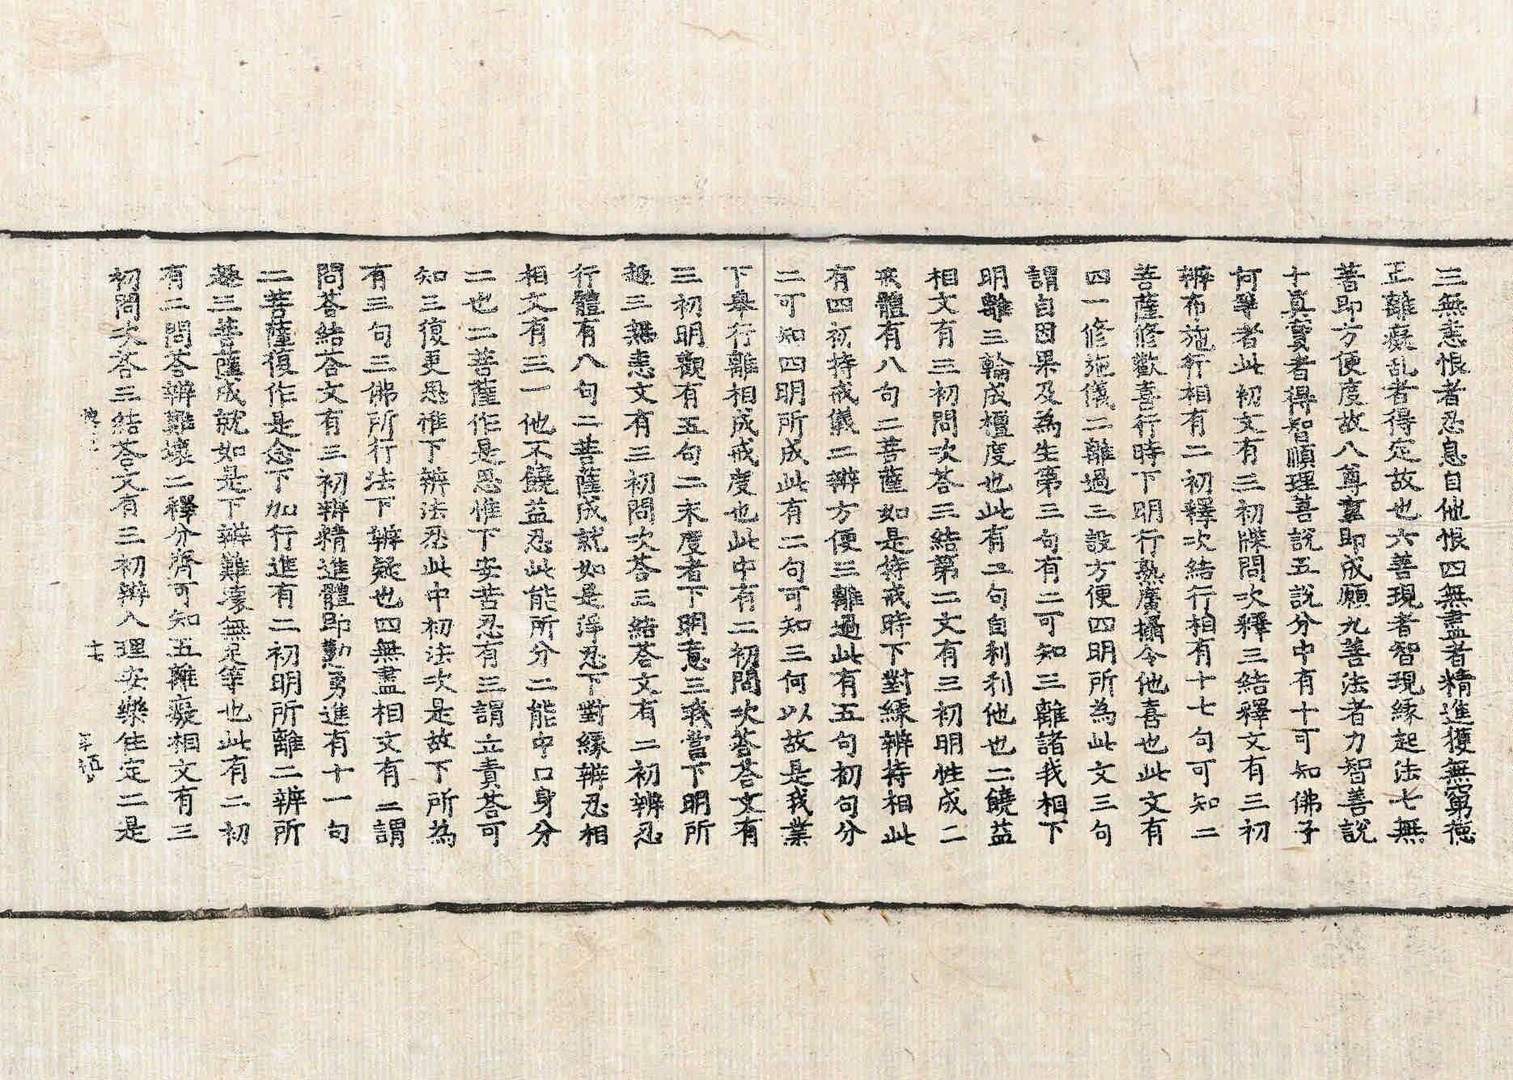 三無恚恨者忍息自他恨四無盡者精進獲無窮德
正離癡乱者得定故也六善現者智現緣起法七無
善即方便度故八尊重即成願九善法者力智善說
十真實者得智順理善說五說分中有十可知佛子
何等者此初文有三初牒問次釋三結釋文有三初
辨布施行相有二初釋次結行相有十七句可知二
菩薩修歡喜行時下明行熟廣攝令他喜也此文有
四一修施儀二離過三設方便四明所為此文三句
謂自因果及為生第三句有二可知三離諸我相下
明離三輪成檀度也此有二句自利利他也二饒益
相文有三初問次答三結第二文有三初明性成二
戒體有八句二菩薩如是持戒時下對緣辨持相此
有四初持戒儀二辨方便三離過此有五句初句分
二可知四明所成此有二句可知三何以故是我業
下舉行離相成戒度也此中有二初問次答答文有
三初明觀有五句二未度者下明意三我當下明所
趣三無恚文有三初問次答三結答文有二初辨忍
行體有八句二菩薩成就如是淨忍下對緣辨忍相
相文有三一他不饒益忍此能所分二能中口身分
二也二菩薩作是思惟下安苦忍有三謂立責答可
知三復更思惟下辨法忍此中初法次是故下所為
有三句三佛所行法下辨疑也四無盡相文有二謂
問答結答文有三初辨精進體即勤勇進有十一句
二菩薩復作是念下加行進有二初明所離二辨所
趣三菩薩成就如是下辨難壞無足等也此有二初
有二問答辨難壞二釋分齊可知五離癡相文有三
初問次答三結答文有三初辨入理安樂住定二是